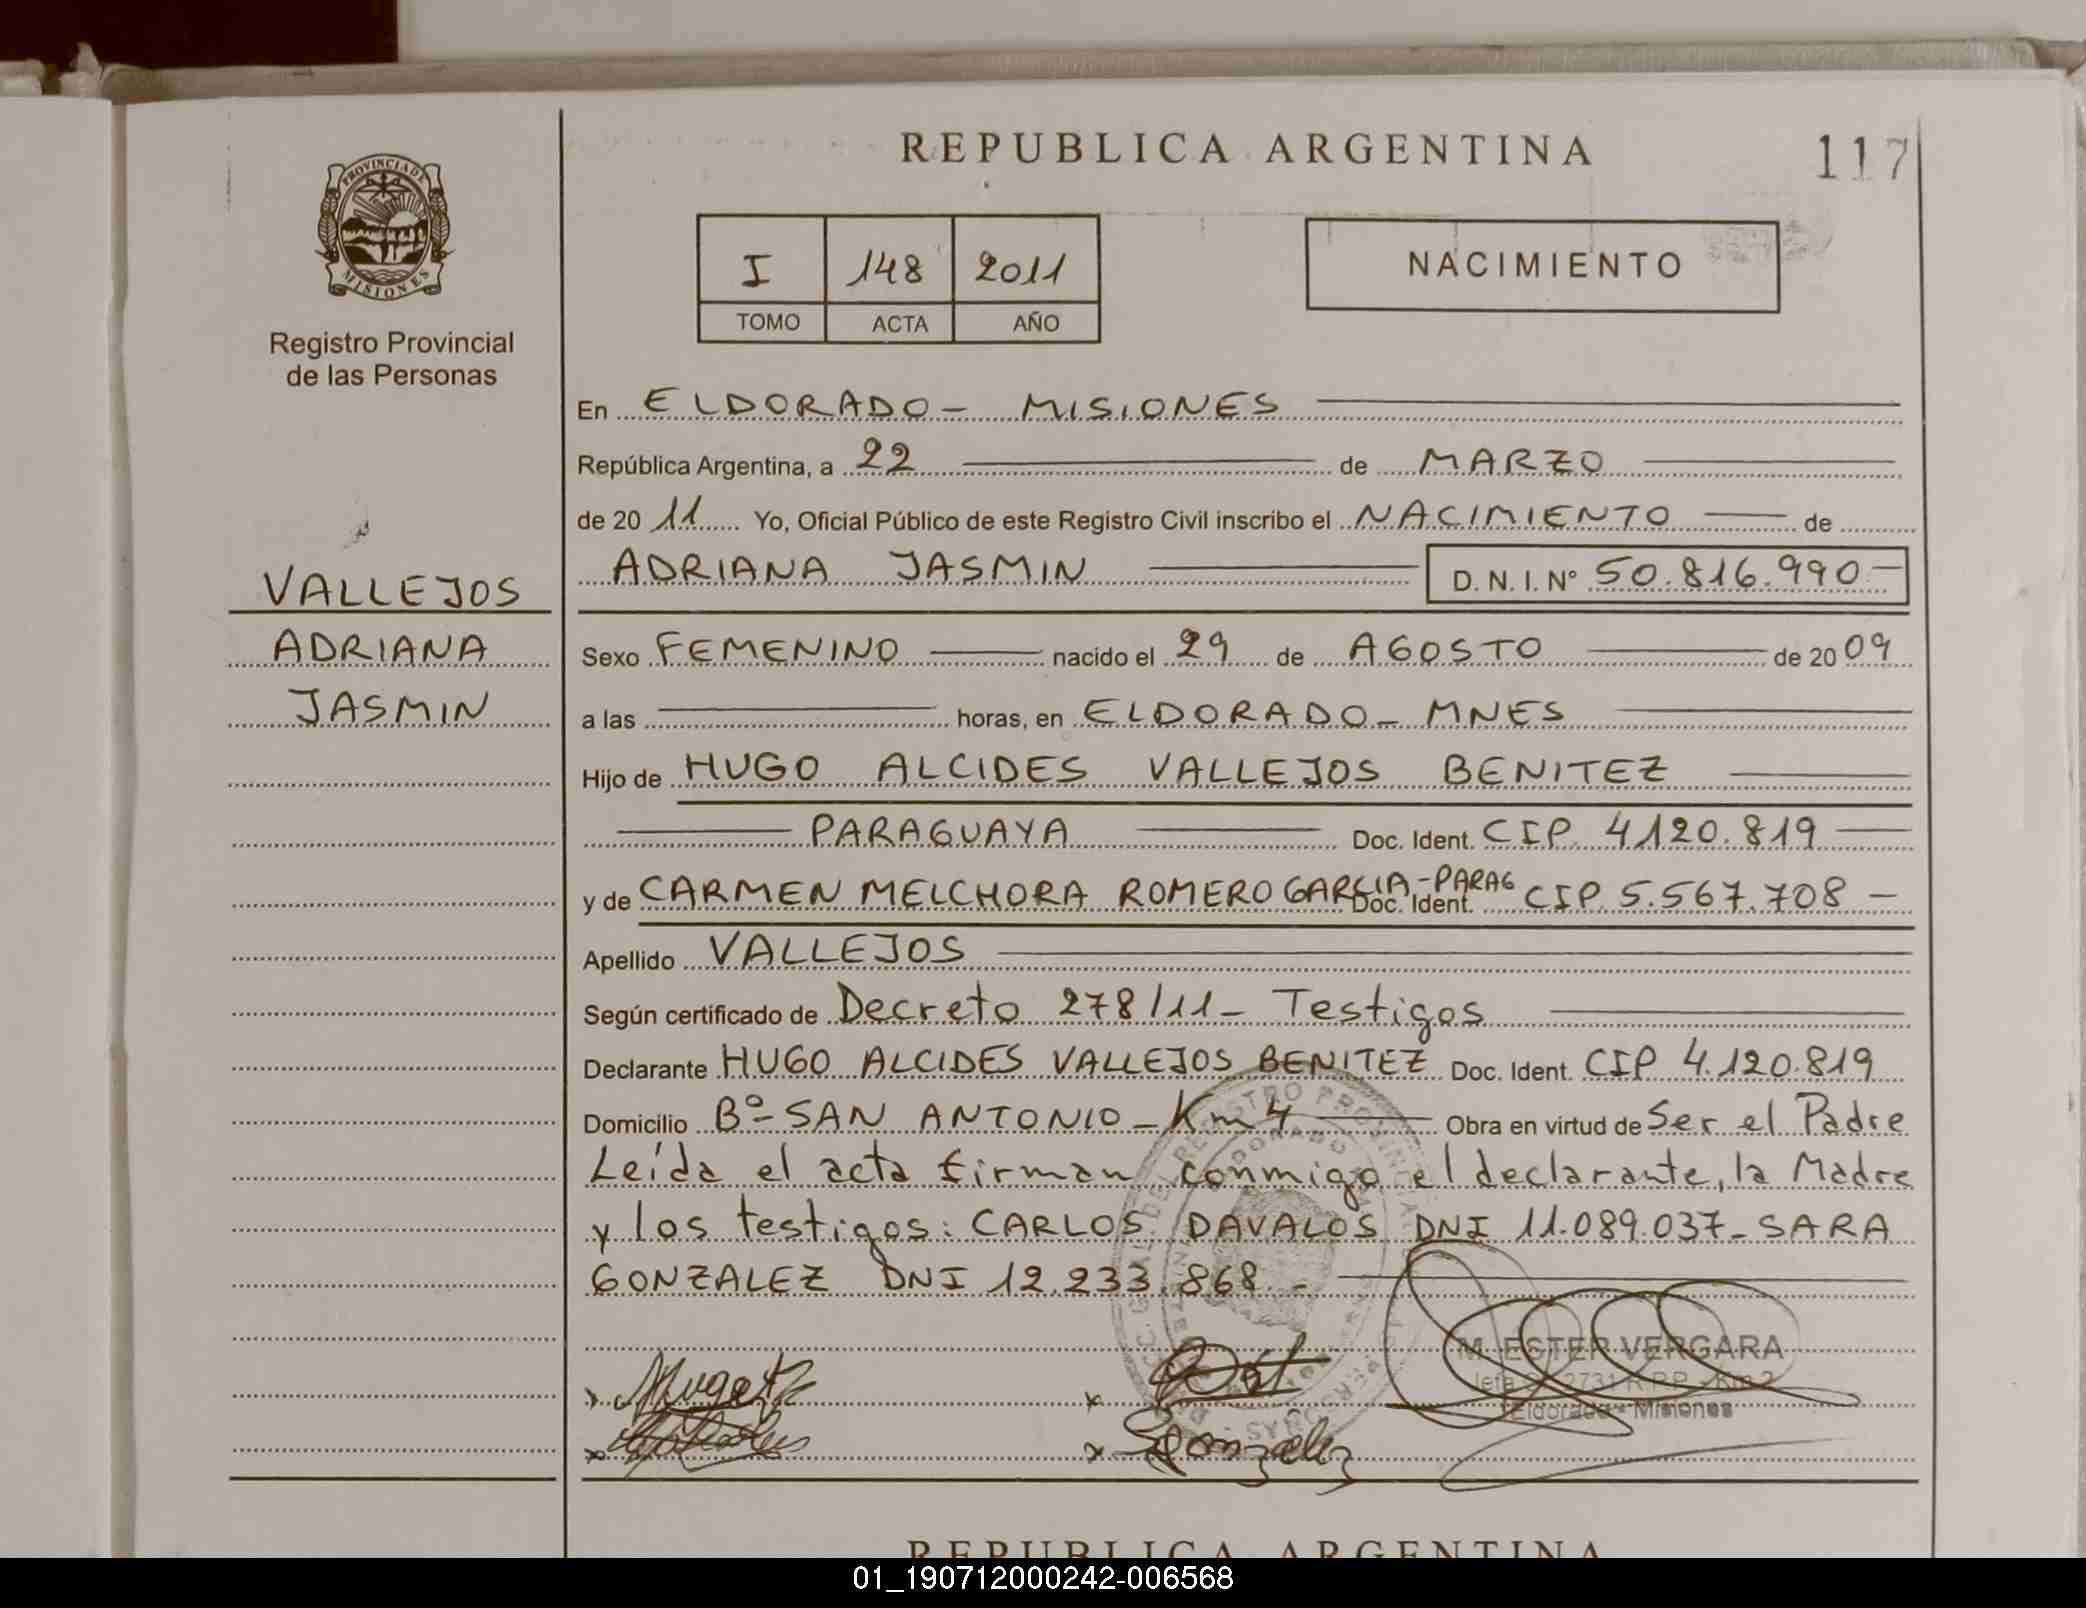 REPUBLICA ARGENTINA
117
PROVINCIA DE
MISIONES
Registro Provincial
de las Personas
I 148 2011
TOMO ACTA AÑO
NACIMIENTO
En ELDORADO - MISIONES
República Argentina, a 22 de MARZO
de 20 11 Yo, Oficial Público de este Registro Civil inscribo el NACIMIENTO de
ADRIANA JASMIN D. N. I. N° 50.816.990-
VALLEJOS
ADRIANA
JASMIN
Sexo FEMENINO nacido el 29 de AGOSTO de 20 09
a las horas, en ELDORADO - MNES
Hijo de HUGO ALCIDES VALLEJOS BENITEZ
PARAGUAYA Doc. Ident. CIP 4120.819
y de CARMEN MELCHORA ROMERO GARCIA - PARAG Doc. Ident. CIP 5.567.708 -
Apellido VALLEJOS
Según certificado de Decreto 278/11 - Testigos
Declarante HUGO ALCIDES VALLEJOS BENITEZ Doc. Ident. CIP 4.120.819
Domicilio Bº- SAN ANTONIO - Km 4 Obra en virtud de Ser el Padre
Leída el acta firman conmigo el declarante, la Madre
y los testigos: CARLOS DAVALOS DNI 11.089.037- SARA
GONZALEZ DNI 12.233.868 -
M. ESTER VERGARA
Eldorado - Misiones
Gonzalez
REPUBLICA ARGENTINA
01_190712000242-006568